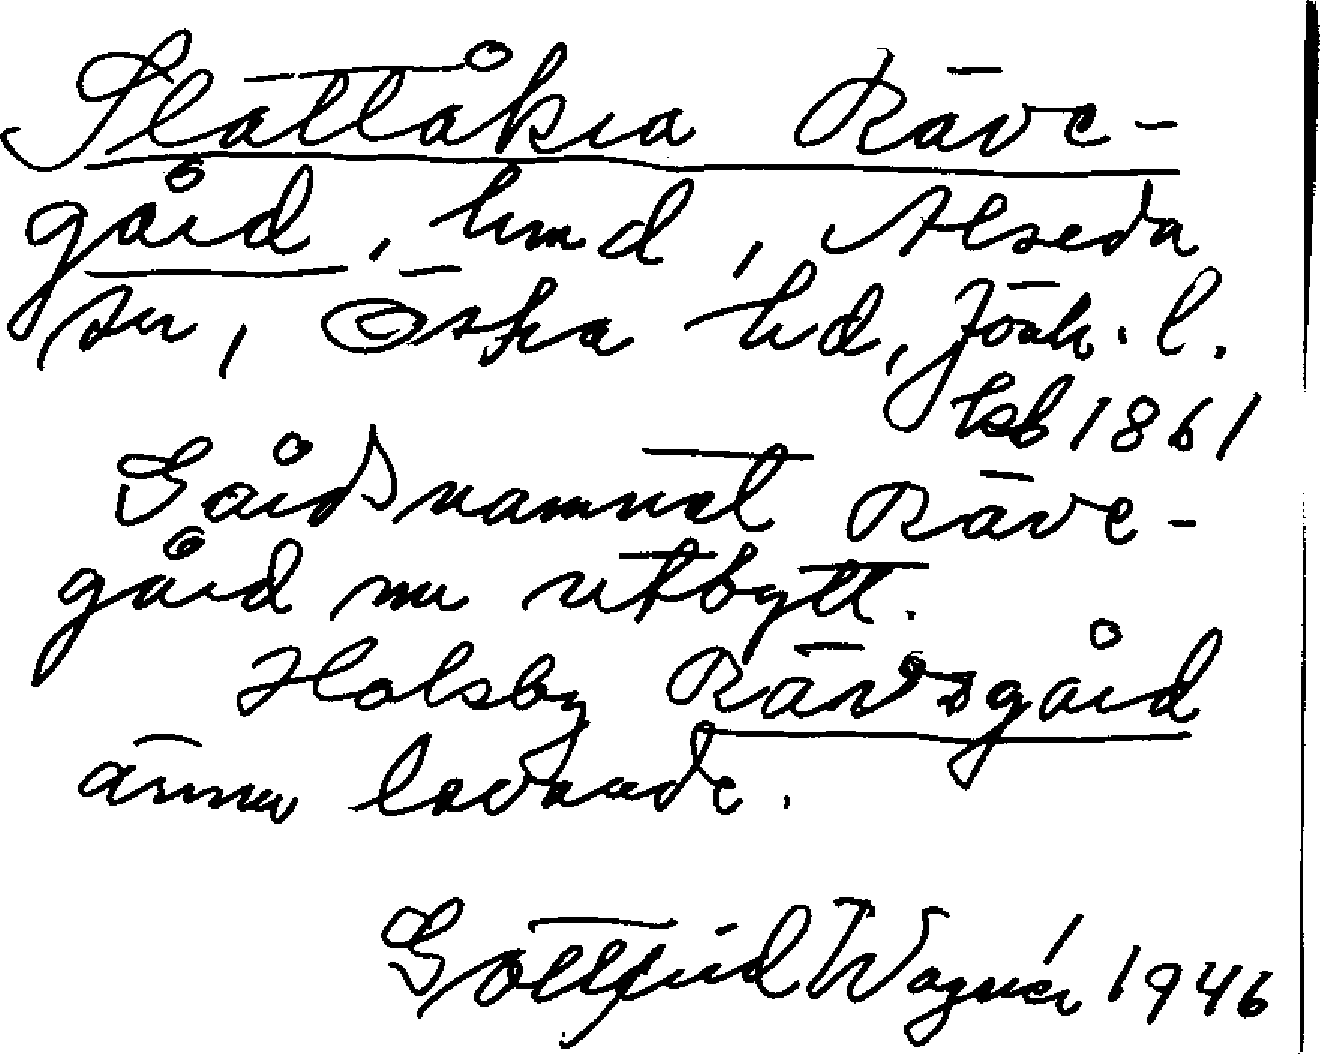 Slättåkra Räve-
gård, hmd, Alseda
sn, Östra hd, Jönk. l.
hsb 1861
Gårdsnamnet Räve-
gård nu utbytt.
Holsby Rävsgård
ännu levande.
Gottfrid Wagnér 1946